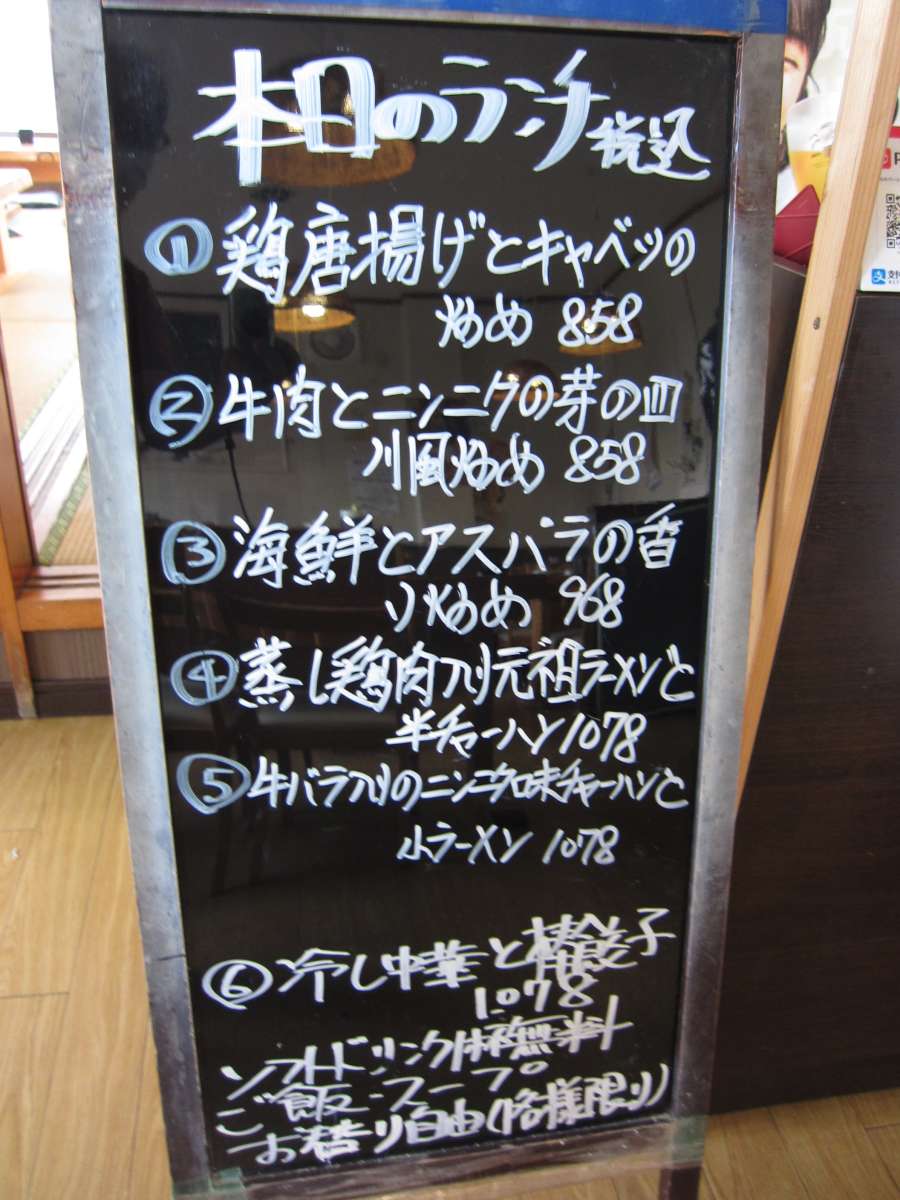 本日のランチ 税込
① 鶏唐揚げとキャベツの
炒め 858
② 牛肉とニンニクの芽の四
川風炒め 858
③ 海鮮とアスパラの香
り炒め 968
④ 蒸し鶏肉入り元祖ラーメンと
半チャーハン 1078
⑤ 牛バラ入りのニンニク味チャーハンと
小ラーメン 1078
⑥ 冷し中華と棒餃子
1078
ソフトドリンク1杯無料
ご飯・スープ
お替り自由(1名様限り)